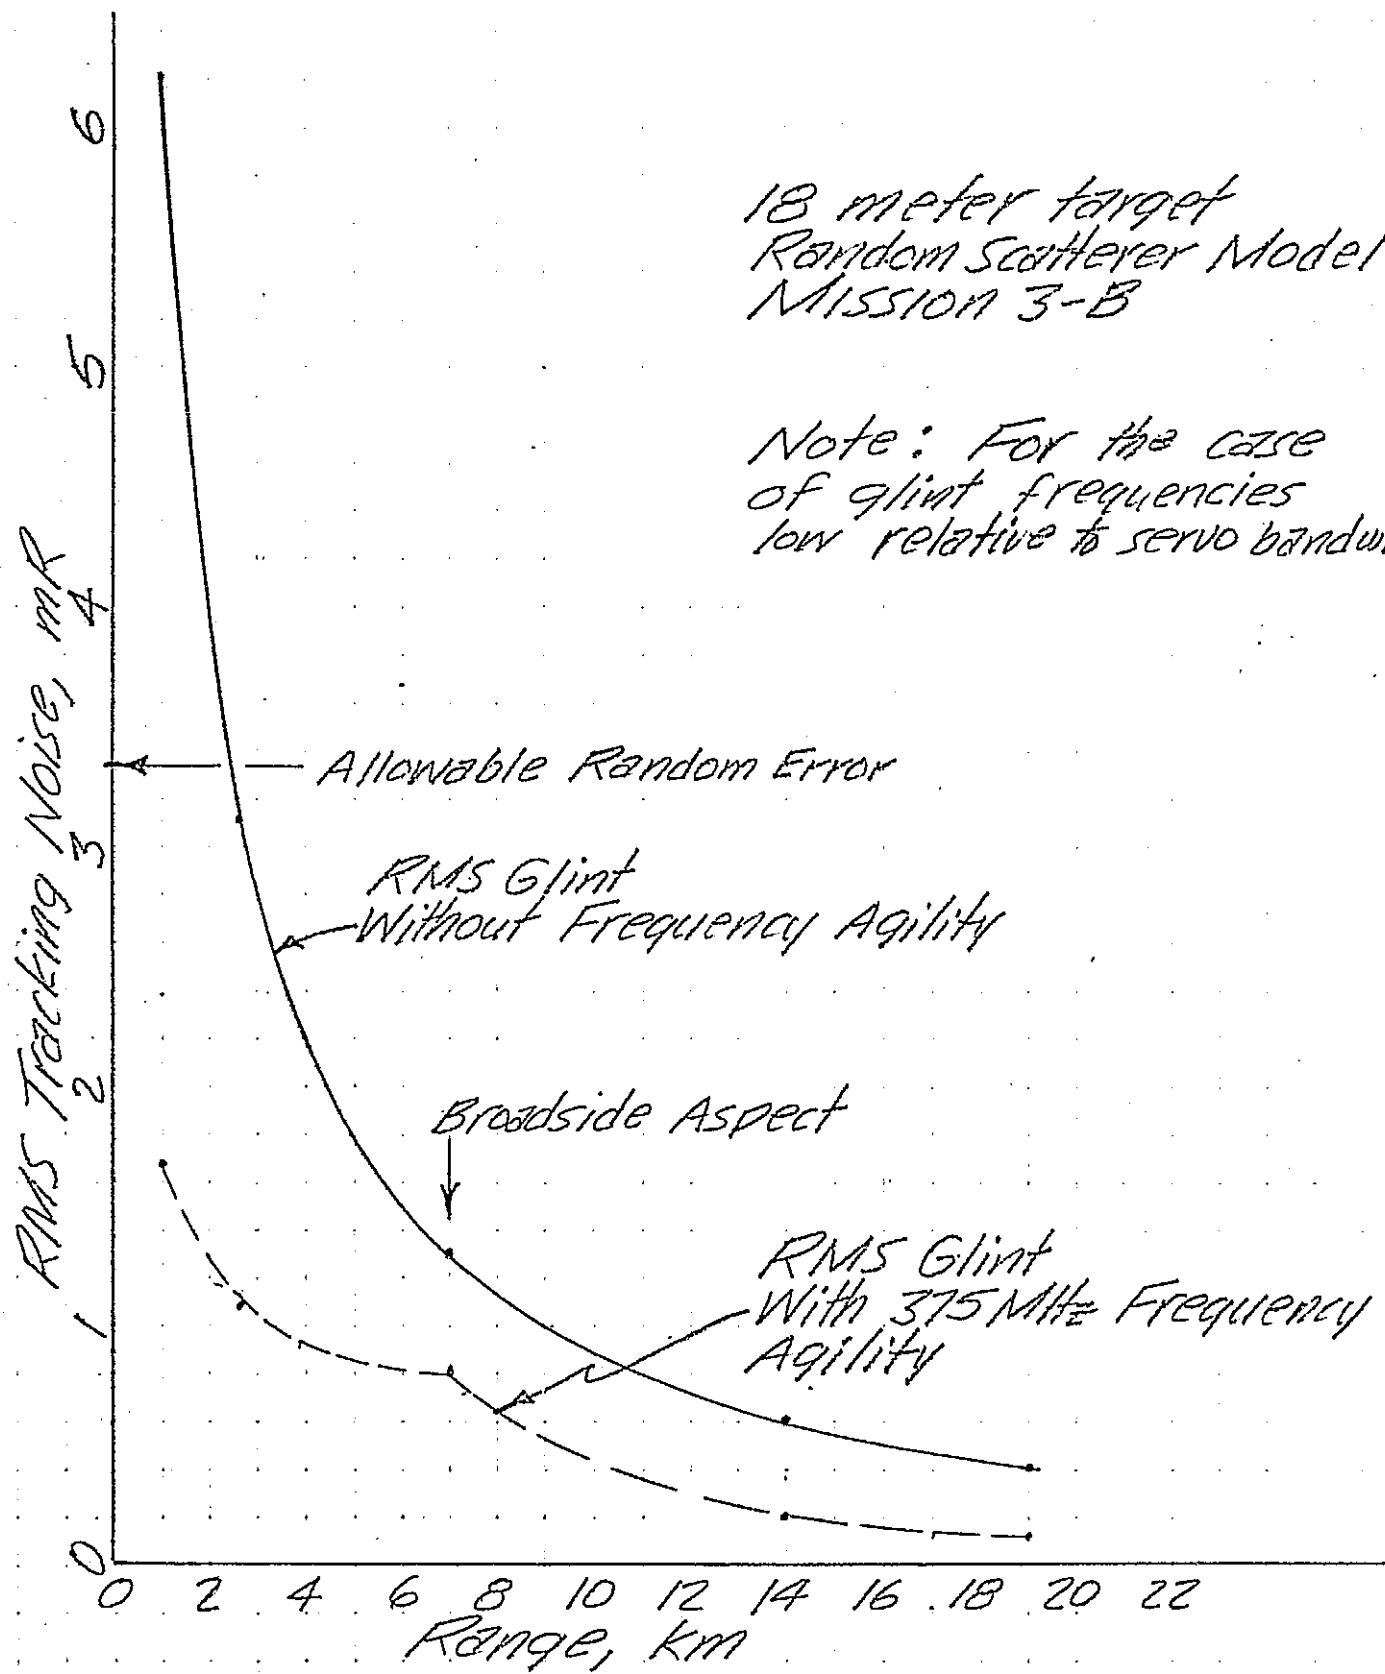 18 meter target
Random Scatterer Model
Mission 3-B
Note: For the case
of glint frequencies
low relative to servo bandwi
Allowable Random Error
RMS Glint
Without Frequency Agility
Broadside Aspect
RMS Glint
With 375 MHz Frequency
Agility
RMS Tracking Noise, mR
6
5
4
3
2
1
0
0 2 4 6 8 10 12 14 16 18 20 22
Range, km